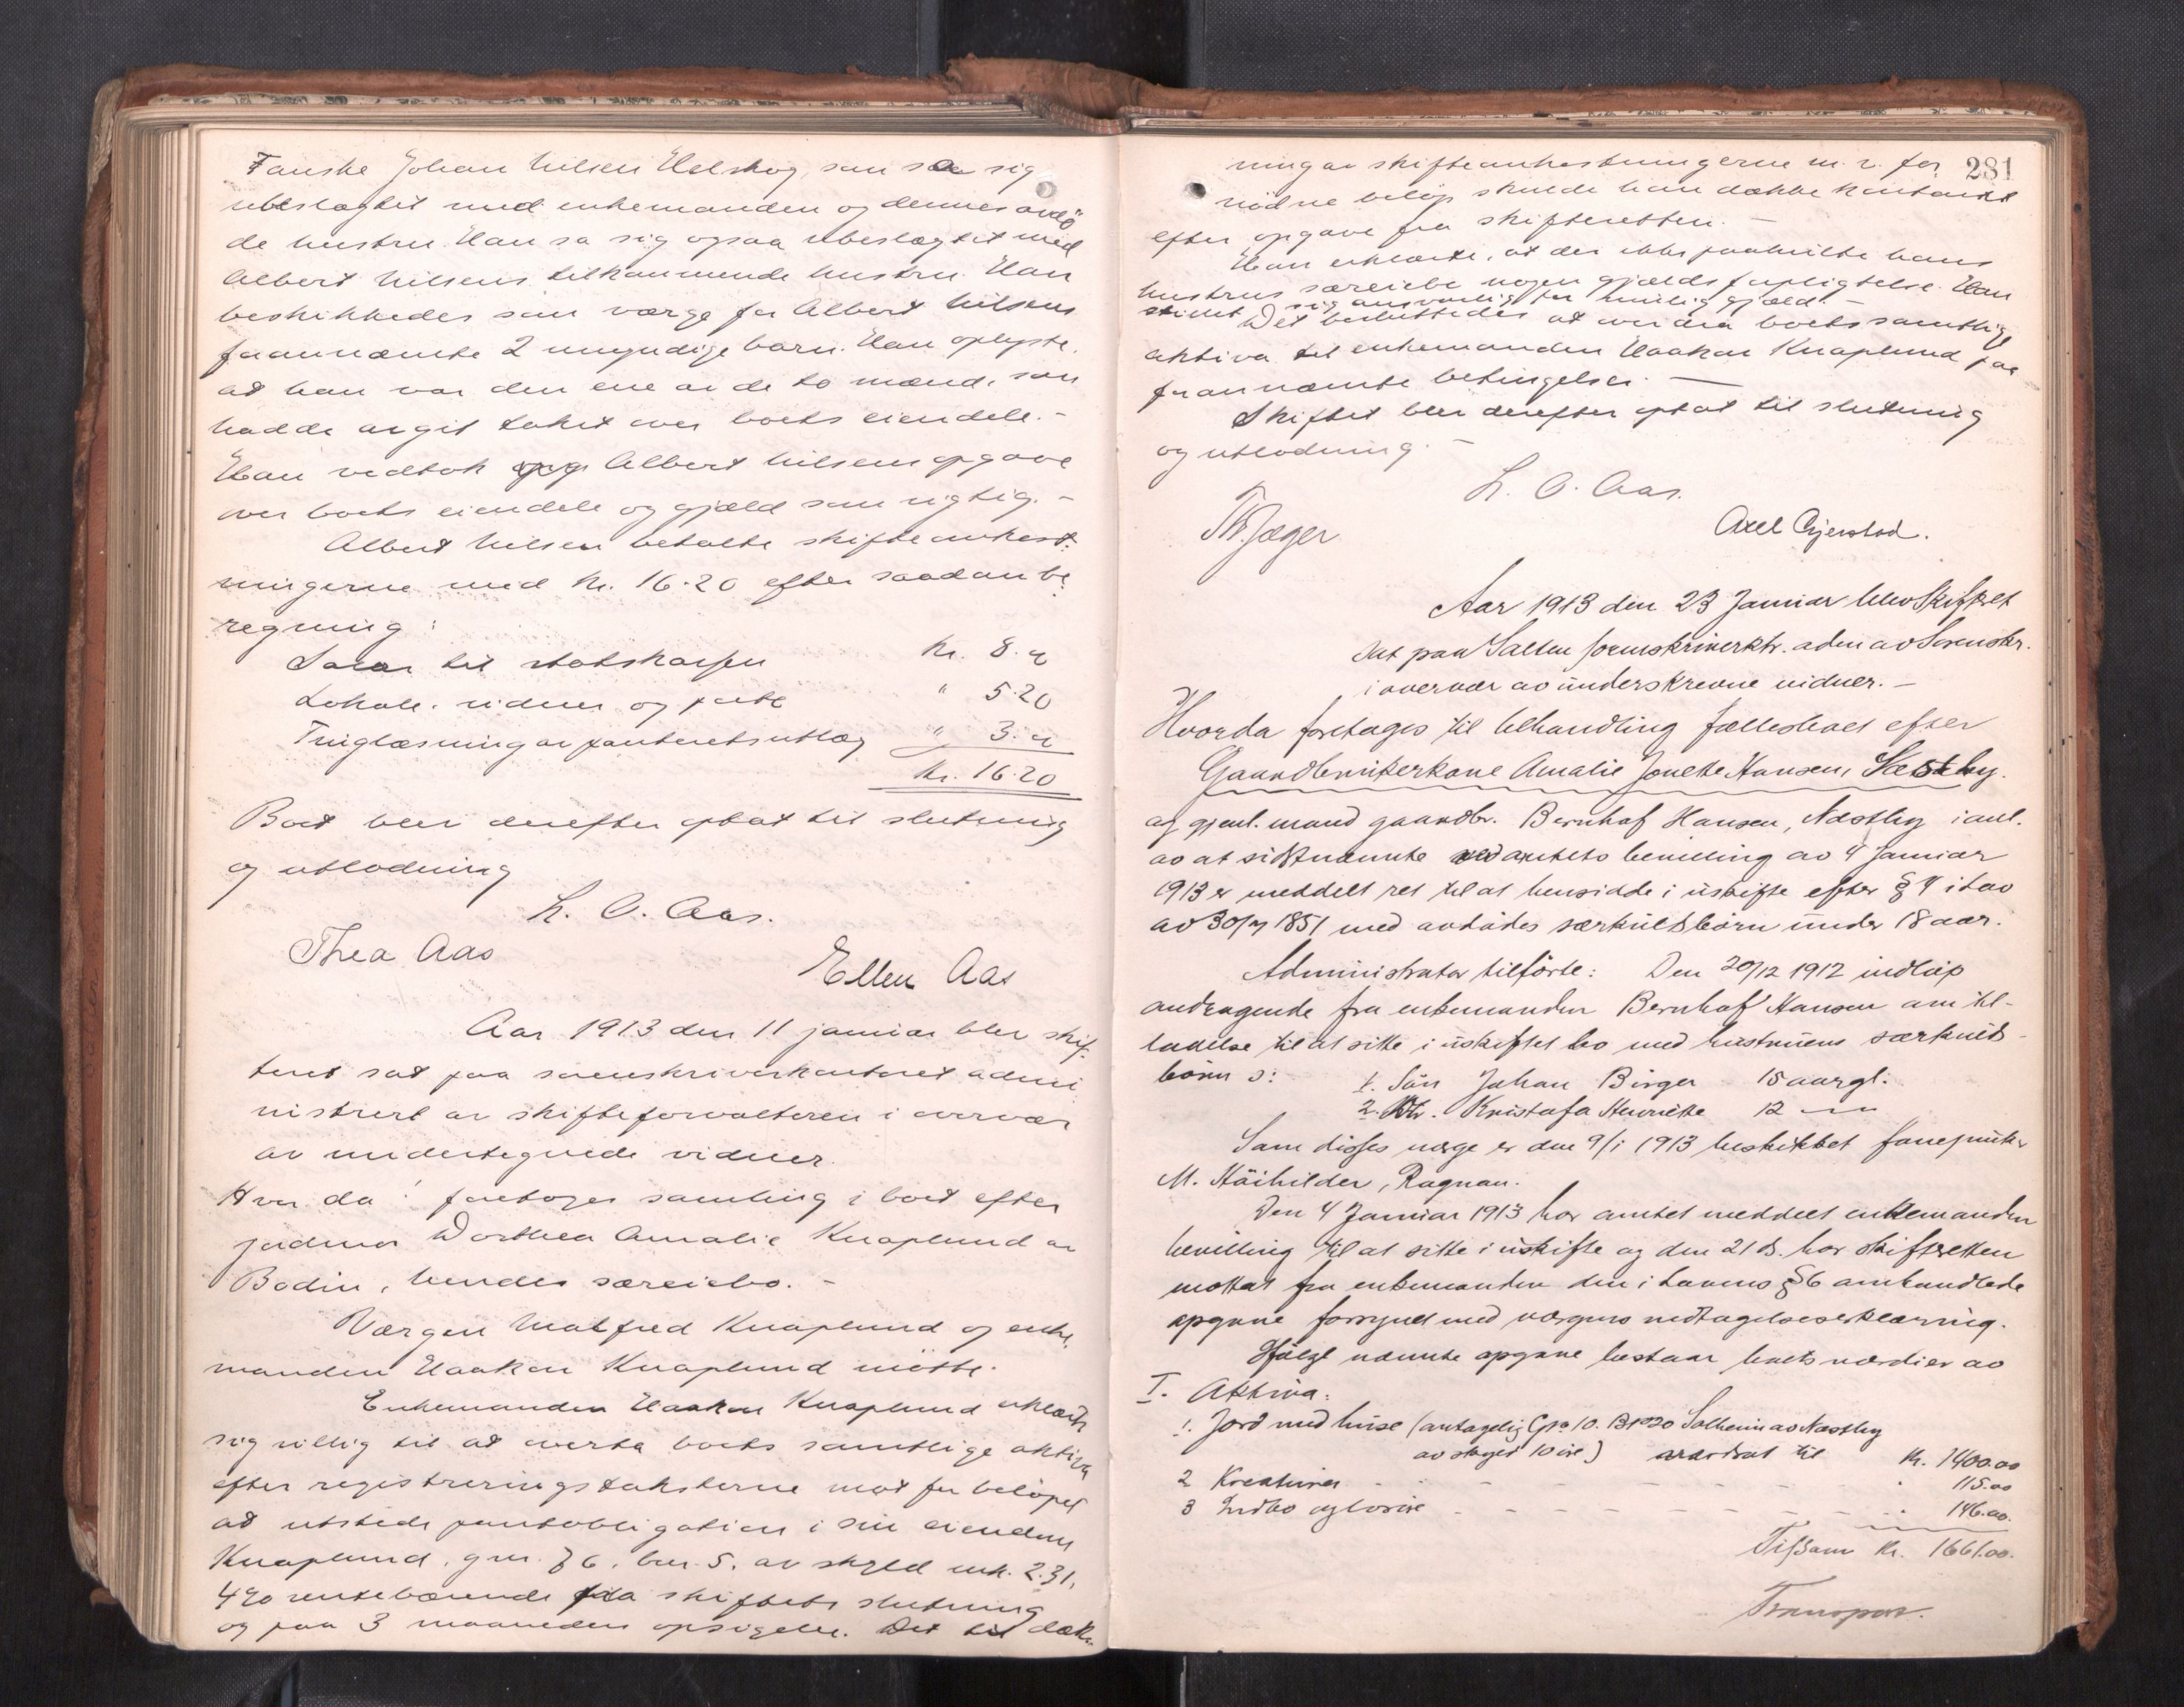 Fauske Johan Nilsen Helskog, som sa sig
ubeslægtet med enkemanden og dennes avdø
de hustru. Han sa sig ogsaa ubeslægtet med
Albert Nilsens tilkommende hustru. Han
beskikkedes som værge for Albert Nilsens
forannævnte 2 umyndige barn. Han oplyste,
at han var den ene av de to mænd, som
hadde avgit takst over boets eiendele. -
Han vedtok Albert Nilsens opgave
over boets eiendele og gjæld som rigtig. -
Albert Nilsen betalte skifteomkost:
ningerne med kr. 16.20 efter saadan be
regning:
Salær til statskassen kr. 8.
Lokale, vidner og porto " 5.20
Tinglæsning av panteretsutlæg " 3.
kr. 16.20
Boet blev derefter optat til slutning
og utlodning
L. O. Aas.
Thea Aas
Ellen Aas
Aar 1913 den 11 januar blev skif-
teret sat paa sorenskriverkontoret admi
nistrert av skifteforvalteren i overvær
av undertegnede vidner.
Hvor da! foretoges samling i boet efter
jordmor Dorthea Amalie Knaplund av
Bodin, hendes særeiebo. -
Værgen Malfred Knaplund og enke
manden Haakon Knaplund møtte.
Enkemanden Haakon Knaplund erklærte
sig villig til at overta boets samtlige aktiva
efter registreringstaksterne mot for beløpet
at utstede panteobligation i sin eiendom
Knaplund, gnr. 76, bnr. 5, av skyld mk. 2.31,
4% rentebærende fra skiftets slutning
og paa 3 maaneders opsigelse. Det til dæk-
281
ning av skifteomkostningerne m. v. for
nødne beløp skulde han dække kontant
efter opgave fra skifteretten. -
Han erklærte, at der ikke paahvilte hans
hustrus særeiebo nogen gjældsforpligtelse. Han
stillet sig ansvarlig for mulig gjæld. -
Det besluttedes at overdra boets samtlige
aktiva til enkemanden Haakon Knaplund paa
forannævnte betingelser. -
Skiftet blev derefter optat til slutning
og utlodning. -
L. O. Aas.
Th. Jæger
Axel Gjerstad.
Aar 1913 den 23 Januar blev Skifteret
sat paa Salten sorenskriverktr. adm av Sorenskr.
i overvær av underskrevne vidner. -
Hvorda foretoges til behandling fællesboet efter
Gaardbrukerkone Amalie Jonette Hansen, Næstby.
og gjenl. mand gaardbr. Bernhof Hansen, Næstby i anl.
av at sidstnævnte ved amtets bevilling av 4 Januar
1913 er meddelt ret til at hensidde i uskifte efter § 4 i lov
av 30/7 1851 med avdødes særkuldsbørn under 18 aar.
Administrator tilførte: Den 20/12 1912 indløp
andragende fra enkemanden Bernhof Hansen om til-
ladelse til at sitte i uskiftet bo med hustruens særkulds-
børn ɔ: 1. Søn Johan Birger 15 aar gl.
2. Dtr. Kristofa Henriette 12 -"-
Som disses verge er den 9/1 1913 beskikket
M. Häihilder, Rognan.
Den 4 Januar 1913 har amtet meddelt enkemanden
bevilling til at sitte i uskifte og den 21 ds. har skifteretten
mottat fra enkemanden den i lovens § 6 omhandlede
opgave forsynet med vergens vedtagelseserklæring.
Ifølge nævnte opgave bestaar boets værdier av
I. Aktiva:
1. Jord med huse (antagelig Gno 10. Bno 20 Solheim av Næstby
av skyld 10 øre) værdsat til kr. 1400.00
2 Kreaturer - - - - - - - - 115.00
3 Indbo og løsøre - - - - - - - 146.00.
Tilsam kr. 1661.00.
Transport.